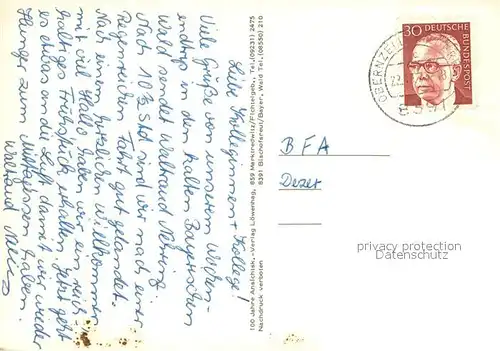 Liebe Kolleginnen + Kollege!
Viele Grüße von unserem Wochen-
endtrip in den kalten Bayerischen
Wald sendet Waltraud Nehring
Nach 10½ Std sind wir nach einer
Regenreichen Fahrt gut gelandet.
Nach einem herzlichen Willkommen
mit viel Hallo haben wir ein reich
haltiges Frühstück erhalten. Jetzt geht
es etwas an die Luft damit wir wieder
Hunger zum Mittagessen haben.
Waltraud
100 Jahre Ansichtsk.-Verlag Löwenhag, 859 Marktredwitz/Fichtelgeb., Tel. (09231) 2475
8391 Bischofsreut/Bayer. Wald Tel. (08550) 210
Nachdruck verboten
30 DEUTSCHE
BUNDESPOST
OBERNZELL
22.
BFA
Dezer
privacy protection
Datenschutz